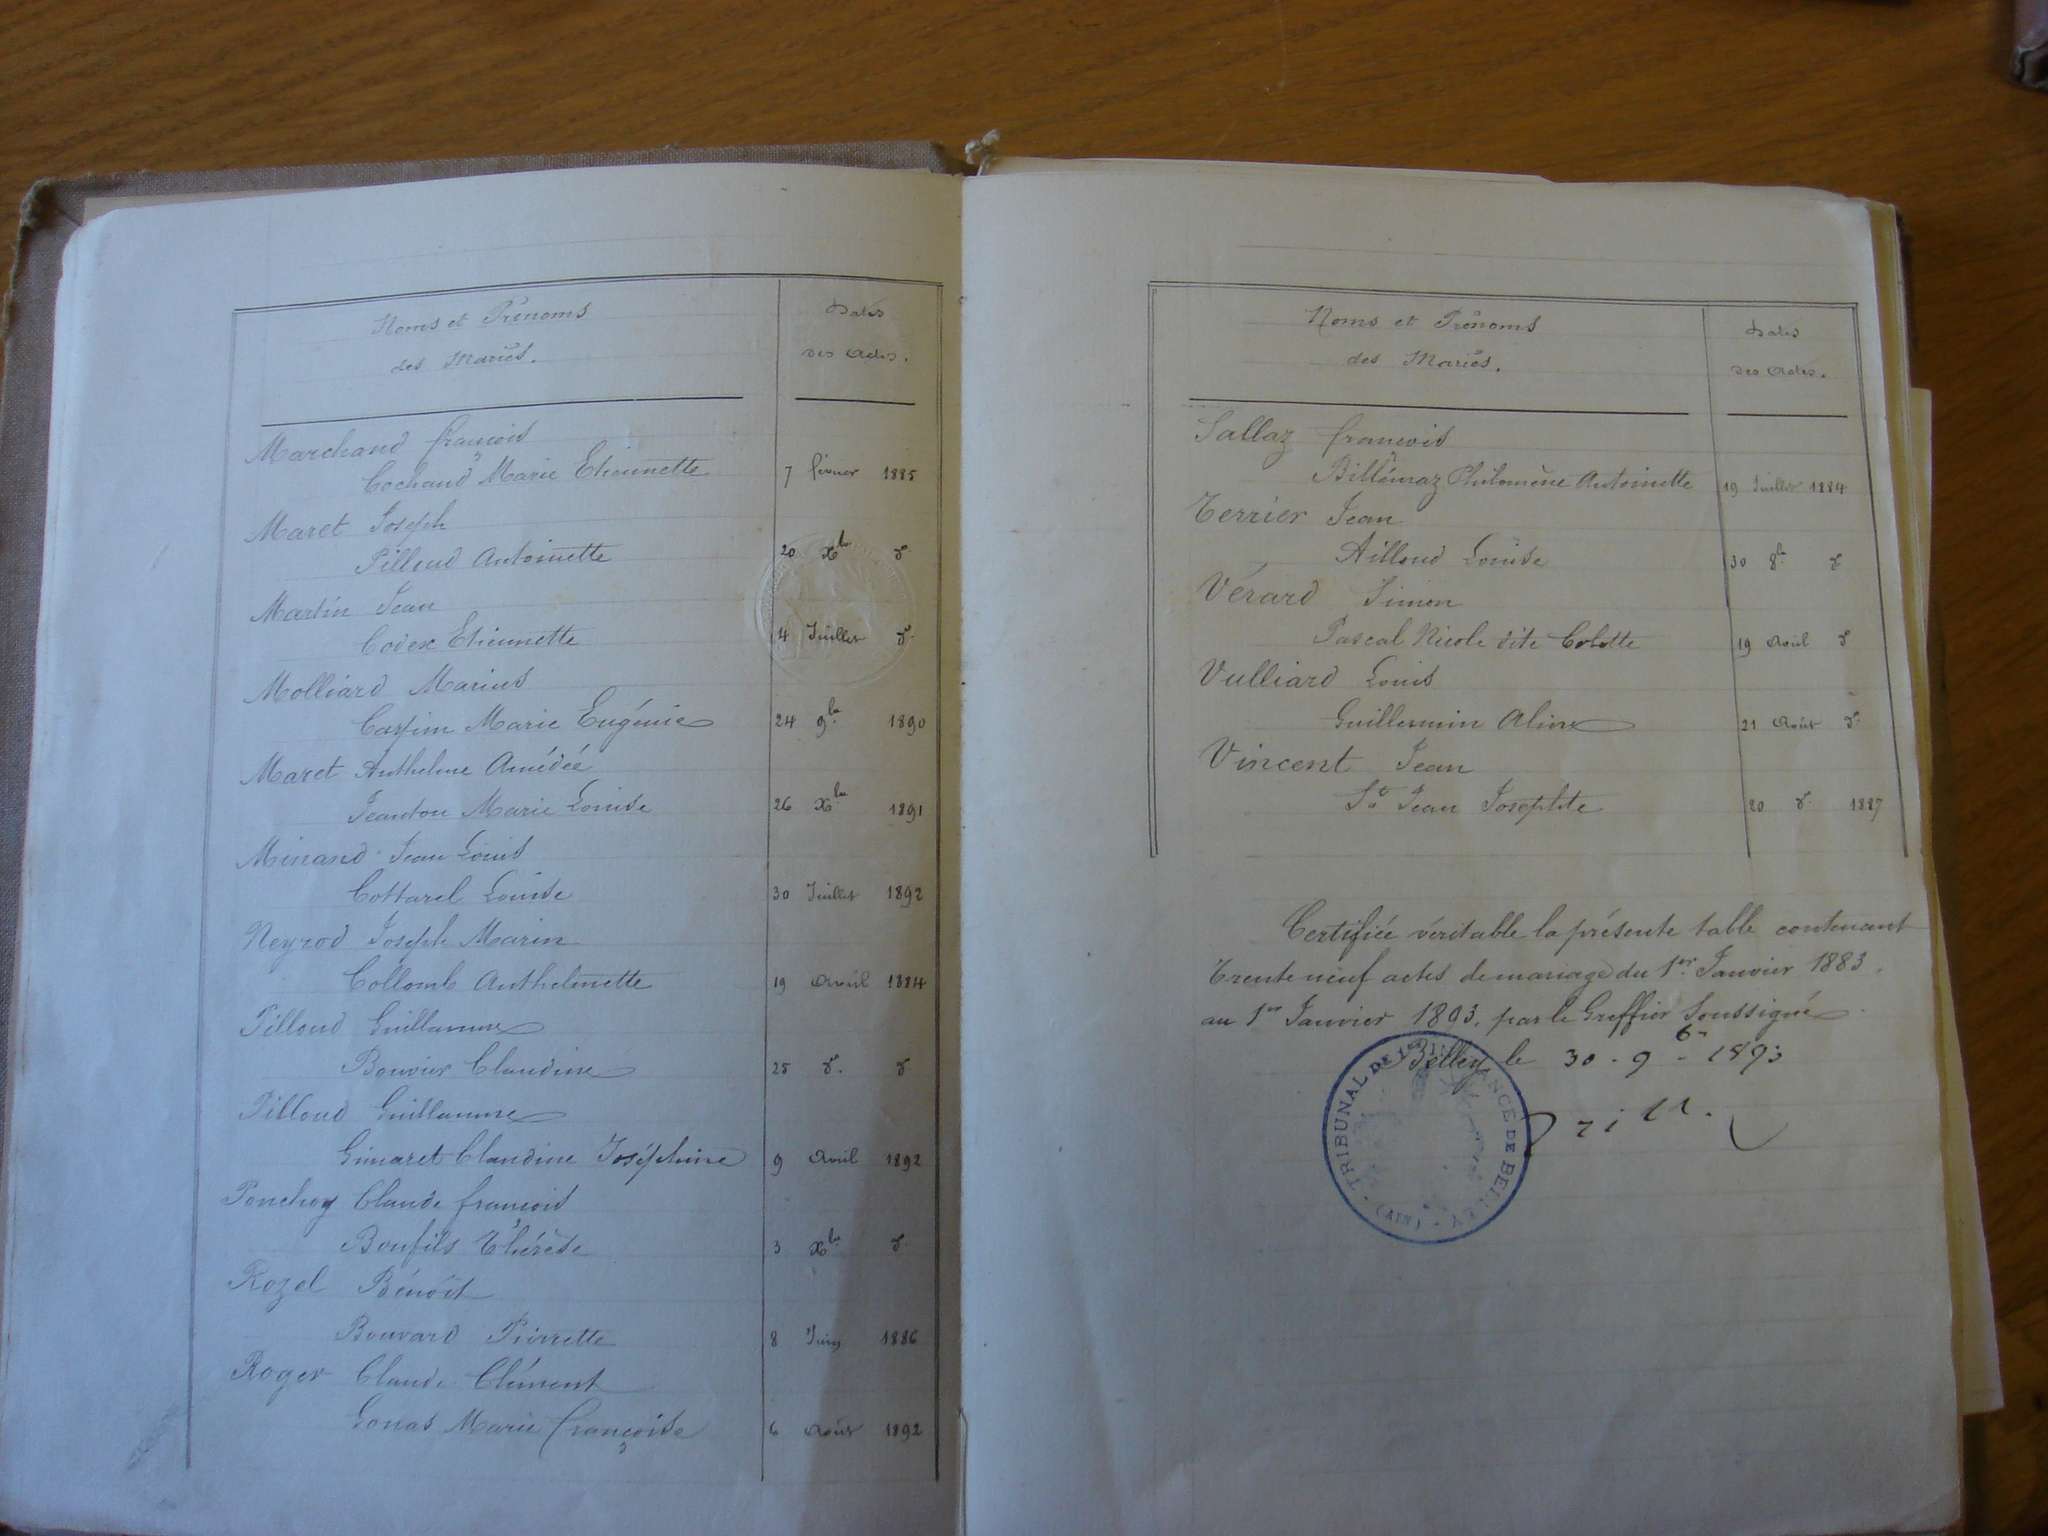 Noms et Prénoms
des Mariés.
Dates
des Actes.
Marchand françois
Cochand Marie Etiennette 7 février 1885
Maret Joseph
Pilloud Antoinette 20 Xbre do
Martin Jean
Codex Etiennette 4 Juillet do
Molliard Marius
Marie Eugénie 24 9bre 1890
Maret Anthelme Amédée
Jeanton Marie Louise 26 Xbre 1891
Minand Jean Louis
Cottarel Louise 30 Juillet 1892
Neyrod Joseph Marin
Collomb Anthelmette 19 Avril 1884
Pilloud Guillaume
Bouvier Claudine 25 do do
Pilloud Guillaume
Gimaret Claudine Joséphine 9 Avril 1892
Ponchoy Claude françois
Bonfils Thérèse 3 Xbre do
Rozel Bénoît
Bouvard Pierrette 8 Juin 1886
Roger Claude Clément
Gonas Marie françoise 6 Août 1892
Noms et Prénoms
des Mariés.
Dates
des Actes.
Sallaz françois
Billémaz Philomène Antoinette 19 Juillet 1884
Terrier Jean
Ailloud Louise 30 8bre do
Vérard Simon
Pascal Nicole dite Colette 19 Avril do
Vulliard Louis
Guillermin Aline 21 Août do
Vincent Jean
St Jean Josephte 20 do 1887
Certifiée véritable la présente table contenant
Trente neuf actes de mariage du 1er Janvier 1883
au 1er Janvier 1893, par le Greffier Soussigné
Belley le 30 - 9bre - 1893
TRIBUNAL DE 1ERE INSTANCE DE BELLEY
(AIN)